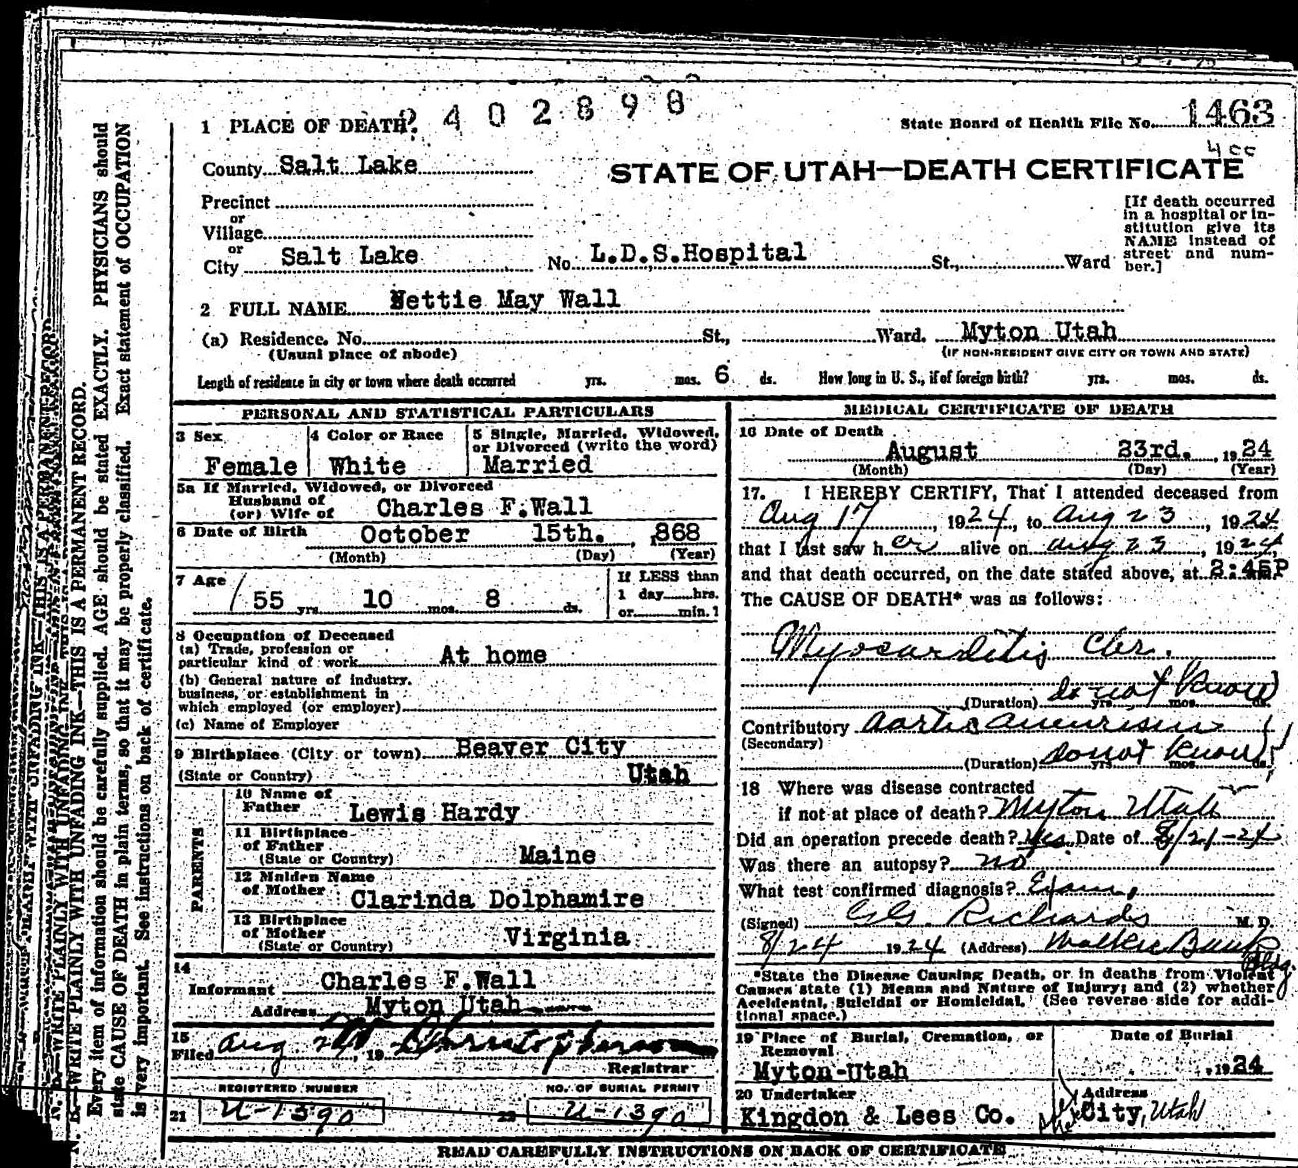 2402898
1 PLACE OF DEATH.
State Board of Health File No. 1463
4cc
County Salt Lake
STATE OF UTAH—DEATH CERTIFICATE
Precinct
or
Village
or
City Salt Lake No. L.D.S.Hospital St., Ward
[If death occurred
in a hospital or in-
stitution give its
NAME instead of
street and num-
ber.]
2 FULL NAME Nettie May Wall
(a) Residence. No. St., Ward. Myton Utah
(Usual place of abode) (IF NON-RESIDENT GIVE CITY OR TOWN AND STATE)
Length of residence in city or town where death occurred yrs. mos. 6 ds. How long in U. S., if of foreign birth? yrs. mos. ds.
PERSONAL AND STATISTICAL PARTICULARS
3 Sex
Female
4 Color or Race
White
5 Single, Married, Widowed,
or Divorced (write the word)
Married
5a If Married, Widowed, or Divorced
Husband of
(or) Wife of Charles F.Wall
6 Date of Birth October 15th. , 868
(Month) (Day) (Year)
7 Age
55 yrs. 10 mos. 8 ds.
If LESS than
1 day hrs.
or min.?
8 Occupation of Deceased
(a) Trade, profession or
particular kind of work At home
(b) General nature of industry,
business, or establishment in
which employed (or employer)
(c) Name of Employer
9 Birthplace (City or town) Beaver City
(State or Country) Utah
PARENTS
10 Name of
Father Lewis Hardy
11 Birthplace
of Father
(State or Country) Maine
12 Maiden Name
of Mother Clarinda Dolphamire
13 Birthplace
of Mother
(State or Country) Virginia
14
Informant Charles F.Wall
Address Myton Utah
15
Filed Aug , 19
Registrar
REGISTERED NUMBER NO. OF BURIAL PERMIT
21 U-1390 22 U-1390
MEDICAL CERTIFICATE OF DEATH
16 Date of Death
August 23rd. , 1924
(Month) (Day) (Year)
17. I HEREBY CERTIFY, That I attended deceased from
Aug 17, 1924, to Aug 23, 1924
that I last saw her alive on Aug 23, 1924,
and that death occurred, on the date stated above, at 2:45P m.
The CAUSE OF DEATH* was as follows:
Myocarditis Chr.
(Duration) do not know yrs. mos. ds.
Contributory aortic aneurism
(Secondary)
(Duration) do not know yrs. mos. ds.
18 Where was disease contracted
if not at place of death? Myton Utah
Did an operation precede death? Yes Date of 8/21-24
Was there an autopsy? no
What test confirmed diagnosis? Exam.
(Signed) G.G. Richards M. D.
8/24 1924 (Address) Walker Bank Bldg.
*State the Disease Causing Death, or in deaths from Violent
Causes state (1) Means and Nature of Injury; and (2) whether
Accidental, Suicidal or Homicidal. (See reverse side for addi-
tional space.)
19 Place of Burial, Cremation, or
Removal
Myton-Utah
Date of Burial
, 1924
20 Undertaker
Kingdon & Lees Co.
Address
City, Utah
READ CAREFULLY INSTRUCTIONS ON BACK OF CERTIFICATE
N. B.—WRITE PLAINLY WITH UNFADING INK—THIS IS A PERMANENT RECORD.
Every item of information should be carefully supplied. AGE should be stated EXACTLY. PHYSICIANS should
state CAUSE OF DEATH in plain terms, so that it may be properly classified. Exact statement of OCCUPATION
is very important. See instructions on back of certificate.